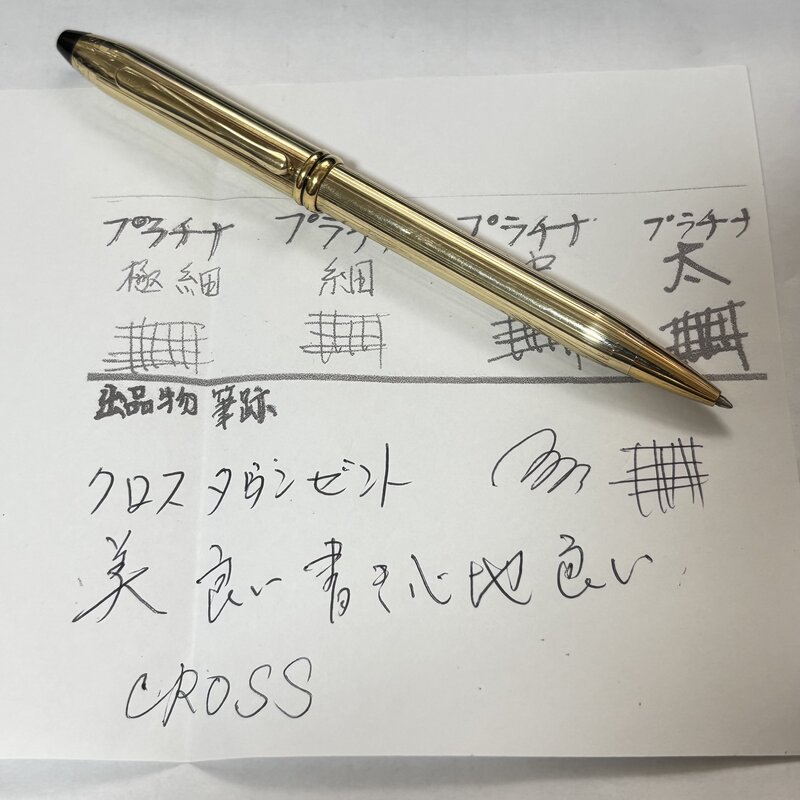 プラチナ プラチナ プラチナ プラチナ
極細 細 太
出品物 筆跡
クロス タウンゼント
美 良い 書き心地 良い
CROSS